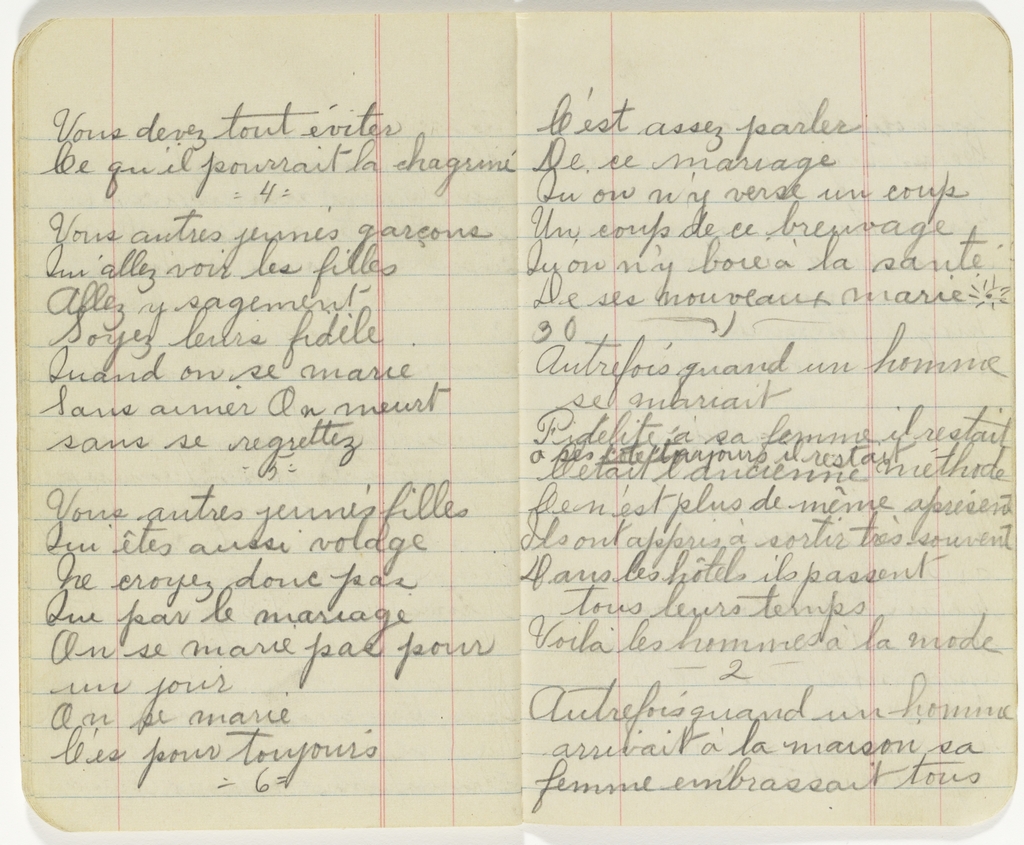 Vous devez tout éviter
Ce qu'il pourrait la chagriné
= 4 =
Vous autres jeunes garçons
Qui allez voir les filles
Allez y sagement
Soyez leurs fidèle
Quand on se marie
Sans aimer On meurt
sans se regrettez
= 5 =
Vous autres jeunes filles
Qui êtes aussi volage
Ne croyez donc pas
Que par le mariage
On se marie pas pour
un jour
On se marie
C'es pour toujours
= 6 =
C'est assez parler
De ce mariage
Qu on n'y verse un coup
Un coup de ce breuvage
Qu on n'y boie à la santé
De ses nouveaux marie
30
Autrefois quand un homme
se mariait
Fidélité à sa femme il restait
a ses côté toujours il restait
C'était l'ancienne méthode
Ce n'est plus de même aprésent
Ils ont appris à sortir très souvent
Dans les hôtels ils passent
tous leurs temps
Voilà les hommes à la mode
— 2 —
Autrefois quand un homme
arrivait à la maison sa
femme embrassait tous